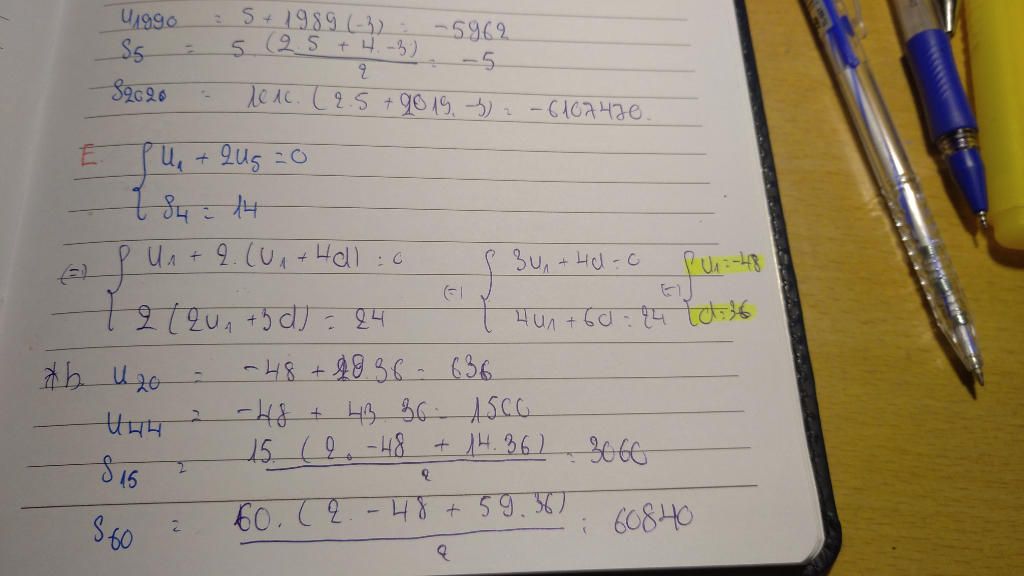 U1990 = 5 + 1989 (-3) = -5962
S5 = 5 (2.5 + 4.-3) / 2 = -5
S2020 = 1010. (2.5 + 2019. -3) = -6107470.
E. { U1 + 2U5 = 0
S4 = 14
(=) { U1 + 2.(U1 + 4d) = 0 (=) { 3U1 + 4d = 0 (=) { U1 = -48
2 (2U1 + 3d) = 24 4U1 + 6d = 24 d = 36
*b U20 = -48 + 19.36 = 636
U44 = -48 + 43 36 = 1500
S15 = 15. (2. -48 + 14.36) / 2 = 3060
S60 = 60. (2. -48 + 59.36) / 2 = 60840